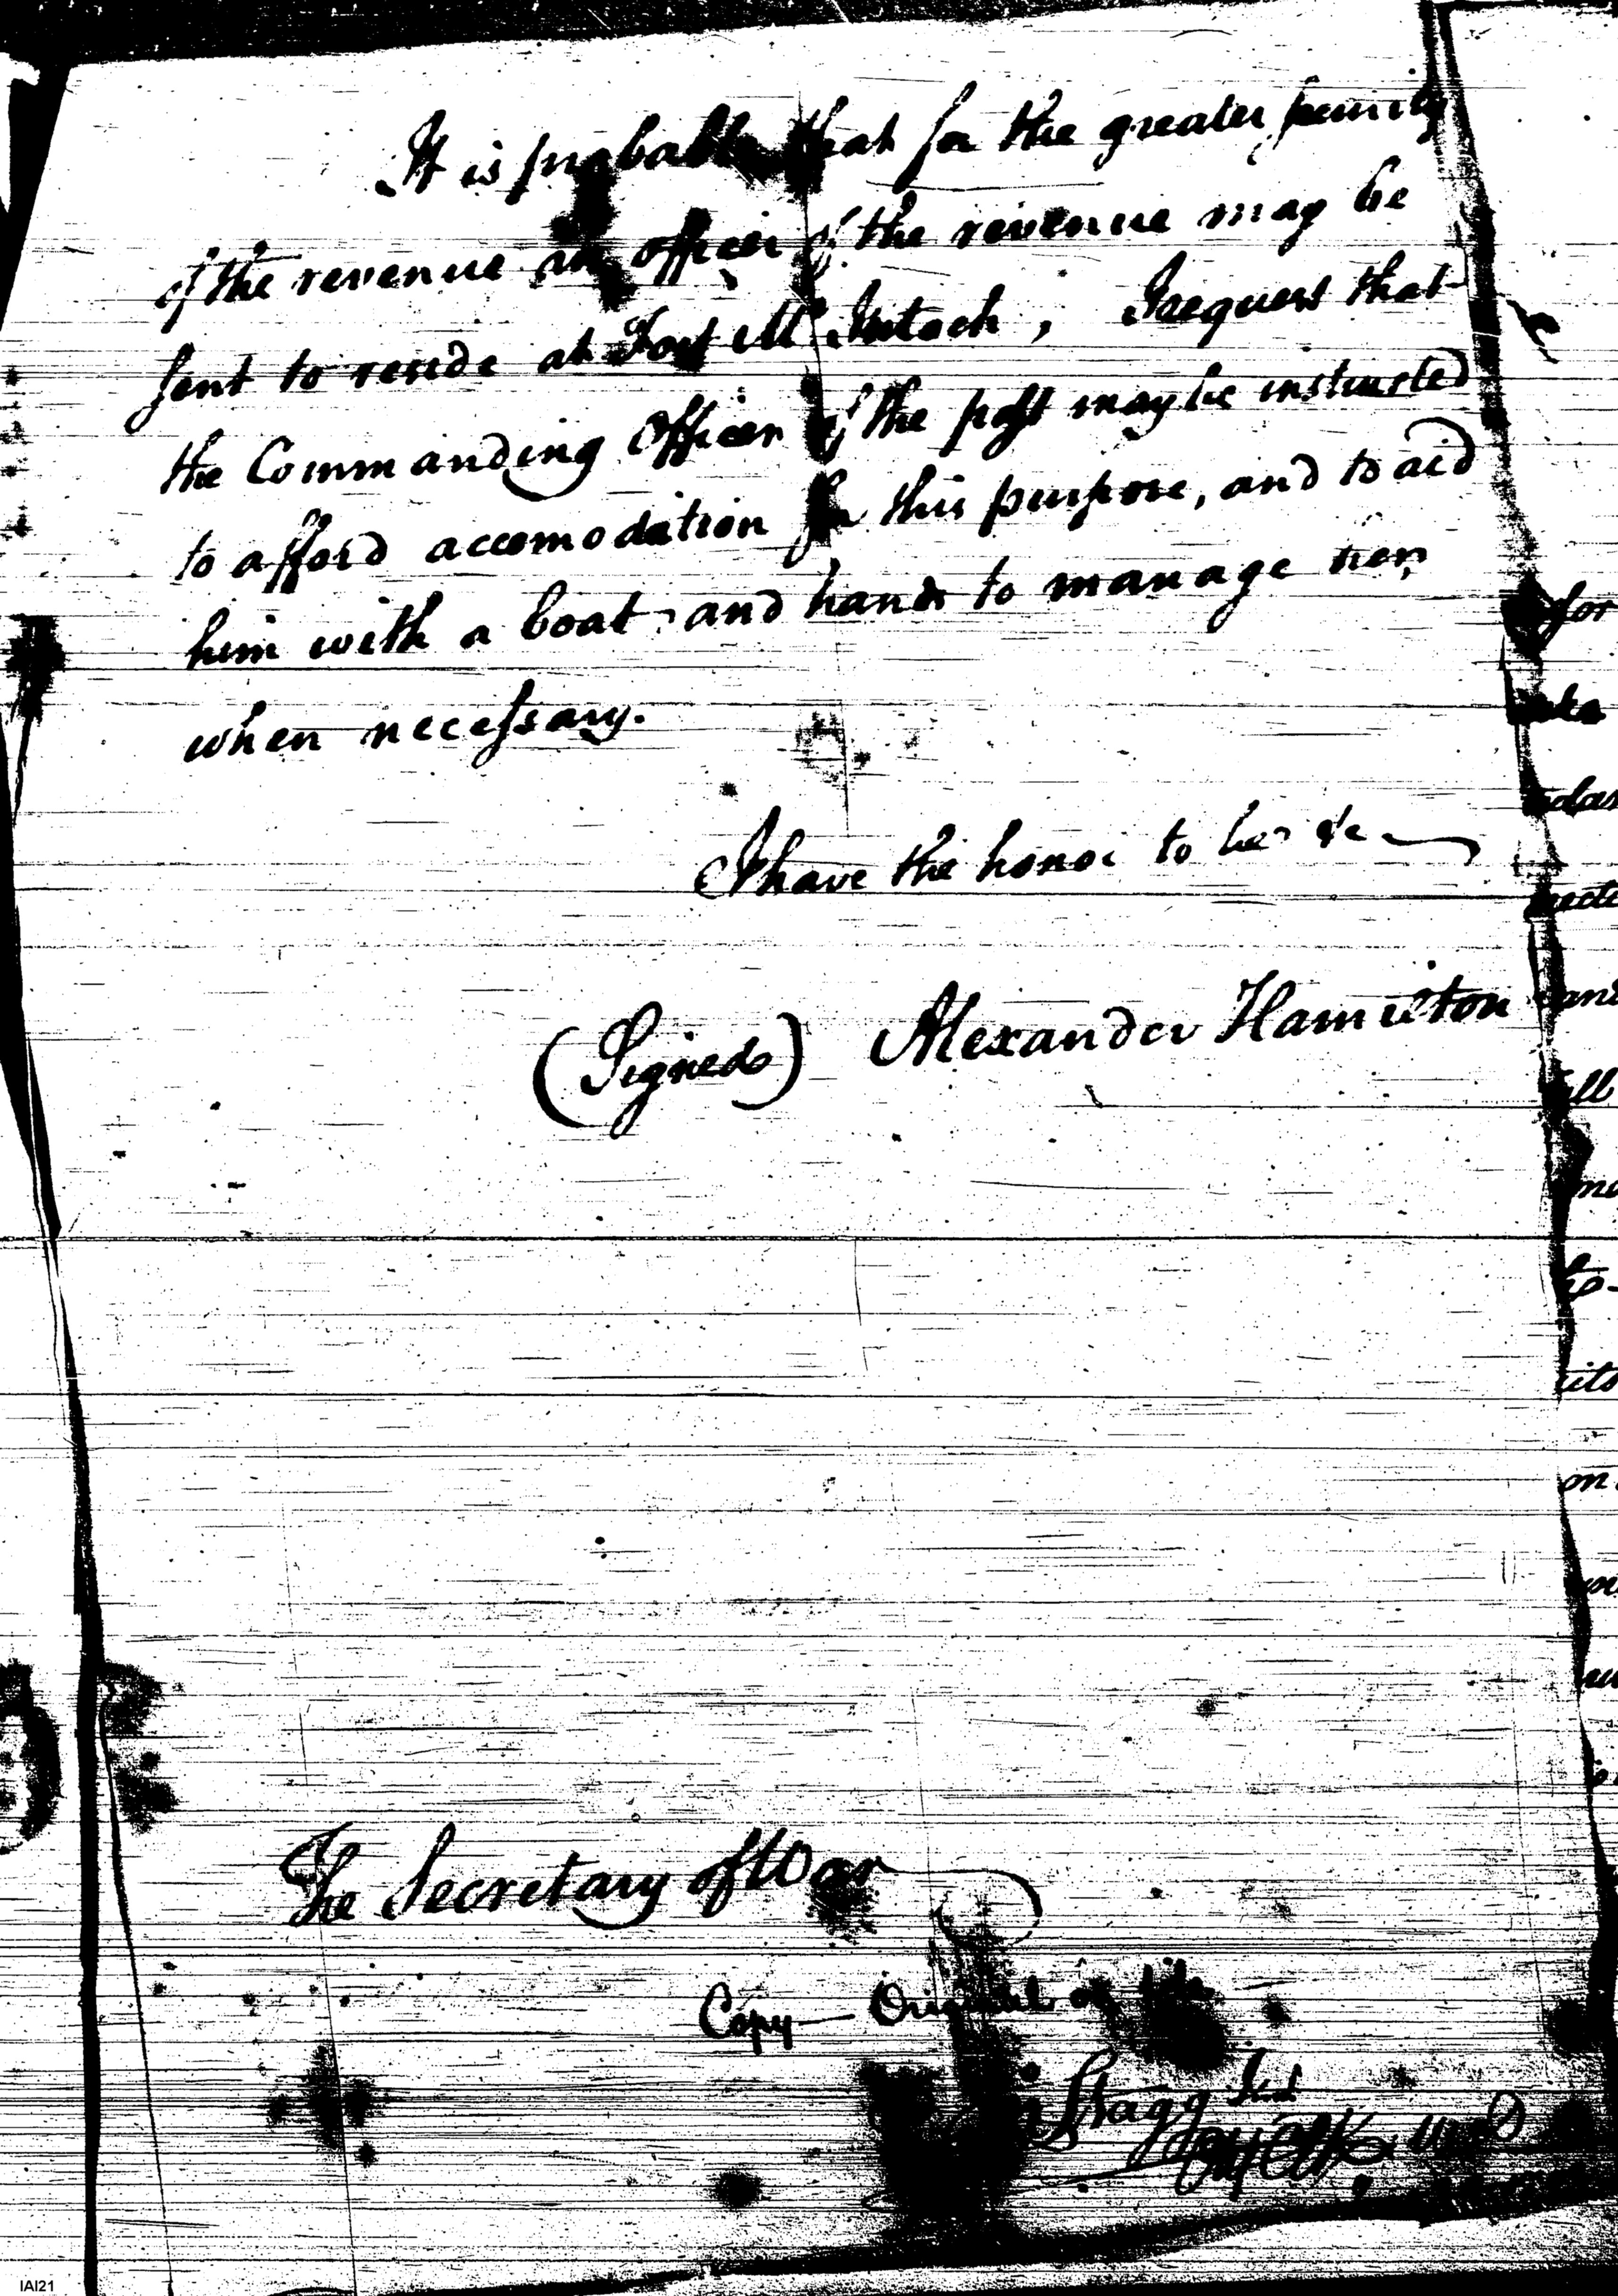 It is probable that for the greater security
of the revenue an officer of the revenue may be
sent to reside at Fort McIntosh, I request that
the Commanding Officer of the post may be instructed
to afford accomodation for this purpose, and to aid
him with a boat and hands to manage her,
when necessary.
I have the honor to be &c
(Signed) Alexander Hamilton
The Secretary of War
Copy — Original on file
Stagg
for
all
to
its
on
IAI21